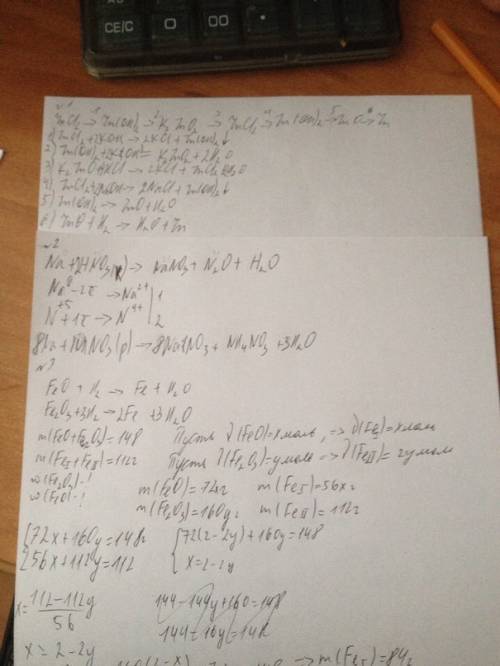 CE/C 0 00 .
ZnCl₂ → Zn(OH)₂ → K₂ZnO₂ → ZnCl₂ → Zn(OH)₂ → ZnO → Zn
1) ZnCl₂+2KOH → 2KCl+Zn(OH)₂↓
2) Zn(OH)₂+2KOH = K₂ZnO₂+2H₂O
3) K₂ZnO₂+HCl → 2KCl+ZnCl₂
4) ZnCl₂+NaOH → 2NaCl+Zn(OH)₂↓
5) Zn(OH)₂ → ZnO+H₂O
6) ZnO+H₂ → H₂O+Zn
№2
Na+2HNO₃(к) → NaNO₃+N₂O+H₂O
Na⁰-2ē → Na²⁺ | 1
N⁺⁵+1ē → N⁴⁺ | 2
8Na+10HNO₃(р) → 8NaNO₃+NH₄NO₃+3H₂O
№3
FeO+H₂ → Fe+H₂O
Fe₂O₃+3H₂ → 2Fe+3H₂O
m(FeO+Fe₂O₃)=148 Пусть ν(FeO)=xмоль, => ν(FeI)=xмоль
m(FeI+FeII)=112г Пусть ν(Fe₂O₃)=yмоль => ν(FeII)=2yмоль
ω(Fe₂O₃)-? m(FeO)=72xг m(FeI)=56xг
ω(FeO)-? m(Fe₂O₃)=160yг m(FeII)=112г
{72x+160y=148 {72(2-2y)+160y=148
{56x+112y=112 {x=2-2y
x=(112-112y)/56 144-144y+160=148
144-16y=148
x=2-2y
m(FeI)=84г